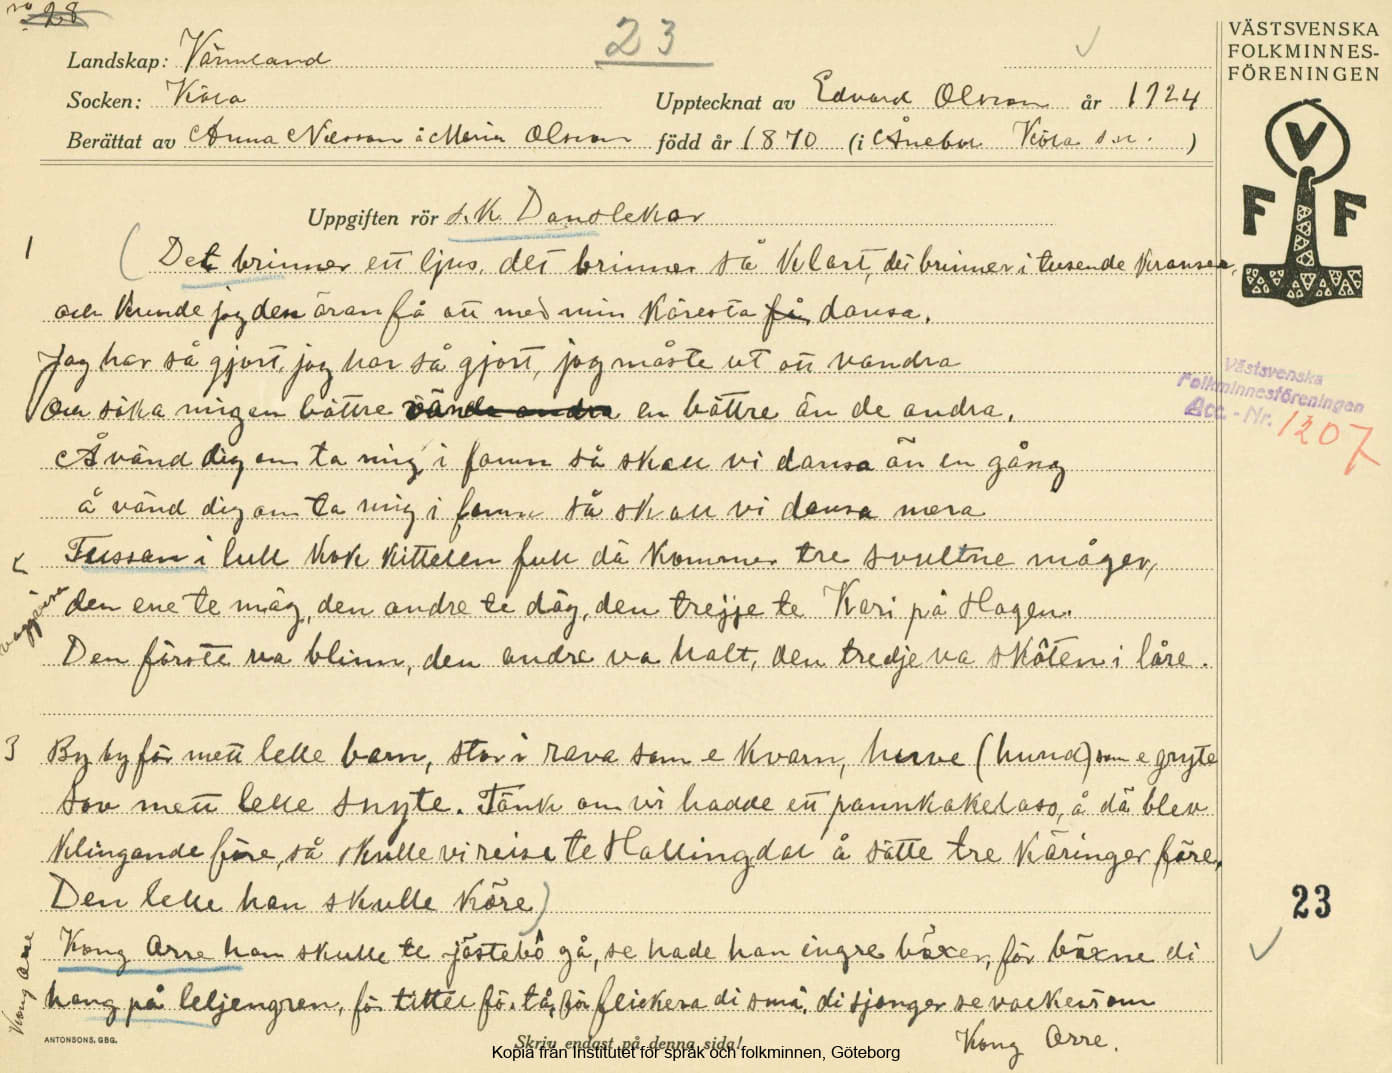 no 28
23
Landskap: Värmland
Socken: Köla
Upptecknat av Edvard Olsson år 1924
Berättat av Anna Nilsson å Maria Olsson född år 1870 (i Ånebol Köla s:n. )
VÄSTSVENSKA
FOLKMINNES-
FÖRENINGEN
V
F F
Uppgiften rör s.k. Danslekar
1 (Det brinner ett ljus, det brinner så klart, det brinner i tusende kransar,
och kunde jag den äran få att med min käresta få dansa.
Jag har så gjort, jag har så gjort, jag måste ut att vandra
och söka mig en bättre vände andra en bättre än de andra.
Å vänd dig om ta mig i famn så skall vi dansa än en gång
å vänd dig om ta mig i famn så skall vi dansa mera
2 Tussan i lull kok kittelen full dä kommer tre svultne måger,
vaggvisa
den ene te mäg, den andre te däg, den trejje te Kari på Hagen.
Den förste va blinn, den andre va halt, den tredje va sköten i låre.
3 By by för mett lelle barn, stor i rava som e kvarn, hurve (hund) som e gryte
sov mett lelle snyte. Tänk om vi hadde ett pannkakelass, å dä blev
klingande före, så skulle vi reise te Hallingdal å sätte tre käringer före,
Den lelle han skulle köre)
Kong Arre han skulle te jästebô gå, se hade han ingre bôxer, för bôxne di
hang på leljengren, för tittel för tå, för flickera di små, di sjonger se vackert om
Kong Arre.
Kong Arre
Västsvenska
Folkminnesföreningen
Acc. - Nr. 1207
23
ANTONSONS, GBG.
Skriv endast på denna sida!
Kopia från Institutet för språk och folkminnen, Göteborg